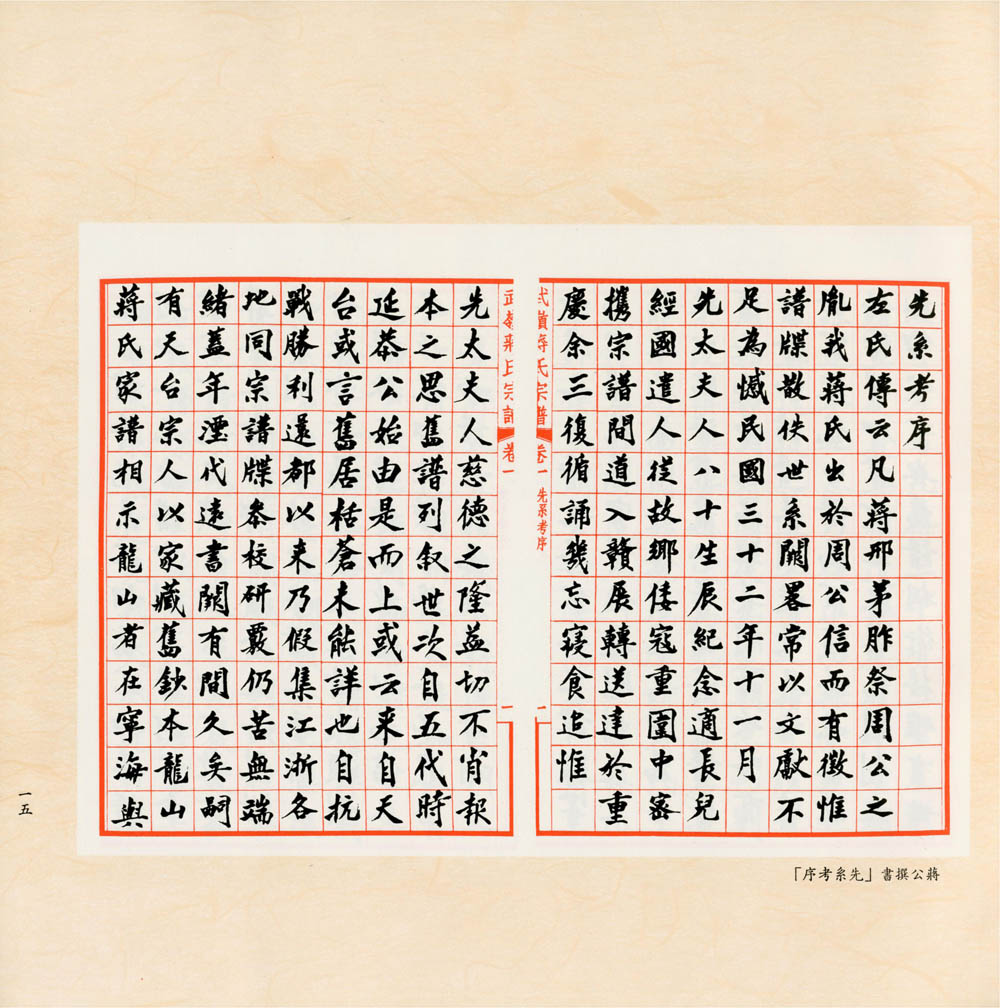 先系考序
左氏傳云凡蔣邢茅胙祭周公之
胤我蔣氏出於周公信而有徵惟
譜牒散佚世系闕畧常以文獻不
足為憾民國三十二年十一月
先太夫人八十生辰紀念適長兒
經國遣人從故鄉倭寇重圍中密
攜宗譜間道入贛展轉送達於重
慶余三復循誦幾忘寢食追惟
武嶺蔣氏宗譜 卷一 先系考序 一
武嶺蔣氏宗譜 卷一 一
先太夫人慈德之隆益切不肖報
本之思舊譜列叙世次自五代時
延恭公始由是而上或云来自天
台或言舊居括蒼未能詳也自抗
戰勝利還都以来乃假集江浙各
地同宗譜牒叅校研覈仍苦無端
緒蓋年湮代遠書闕有間久矣嗣
有天台宗人以家藏舊鈔本龍山
蔣氏家譜相示龍山者在寧海與
一五
蔣公撰書「先系考序」